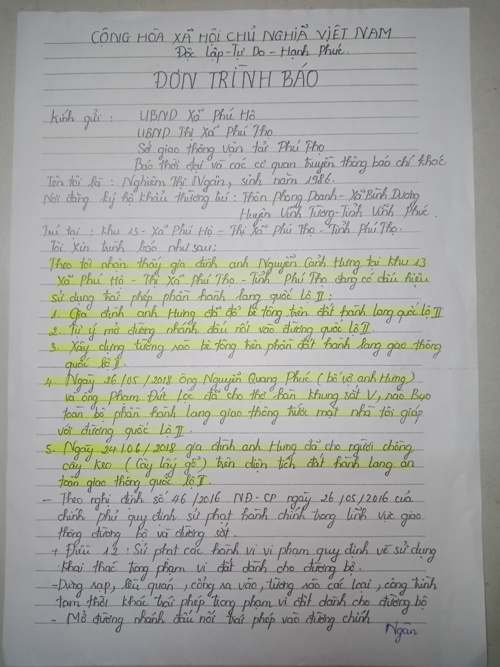 CỘNG HÒA XÃ HỘI CHỦ NGHĨA VIỆT NAM
Độc Lập - Tự Do - Hạnh Phúc
ĐƠN TRÌNH BÁO
Kính gửi : UBND Xã Phú Hộ
UBND Thị Xã Phú Thọ
Sở giao thông vận tải Phú Thọ
Báo thời đại và các cơ quan truyền thông báo chí khác
Tôn tôi là : Nghiêm Thị Ngân, sinh năm 1986.
Nơi đăng ký hộ khẩu thường trú : Thôn Phong Doanh - Xã Bình Dương
Huyện Vĩnh Tường - Tỉnh Vĩnh Phúc.
Trú tại : Khu 13 - Xã Phú Hộ - Thị Xã Phú Thọ - Tỉnh Phú Thọ.
Tôi xin trình báo như sau:
Theo tôi nhận thấy gia đình anh Nguyễn Cảnh Hưng tại khu 13
Xã Phú Hộ - Thị Xã Phú Thọ - Tỉnh Phú Thọ đang có dấu hiệu
sử dụng trái phép phần hành lang quốc lộ II :
1. Gia đình anh Hưng đã đổ bê tông trên đất hành lang quốc lộ II.
2. Tự ý mở đường nhánh đấu nối vào đường quốc lộ II.
3. Xây dựng tường rào bê tông trên phần đất hành lang giao thông
quốc lộ II.
4. Ngày 26/05/2018 ông Nguyễn Quang Phúc (bố vợ anh Hưng)
và ông Phạm Đức Lộc đã cho thợ hàn khung sắt V, rào
toàn bộ phần hành lang giao thông trước mặt nhà tôi giáp
với đường quốc lộ II.
5. Ngày 24/06/2018 gia đình anh Hưng đã cho người chồng
cây keo (cây lấy gỗ) trên diện tích đất hành lang an
toàn giao thông quốc lộ II.
- Theo nghị định số 46/2016 NĐ-CP ngày 26/05/2016 của
chính phủ quy định sử phạt hành chính trong lĩnh vực giao
thông đường bộ và đường sắt.
+ Điều 12 : Sử phạt các hành vi vi phạm quy định về sử dụng
khai thác trong phạm vi đất dành cho đường bộ.
- Dựng rạp, lều quán, cổng ra vào, tường rào các loại, công trình
tạm thời khác trái phép trong phạm vi đất dành cho đường bộ
- Mở đường nhánh đấu nối trái phép vào đường chính
Ngân